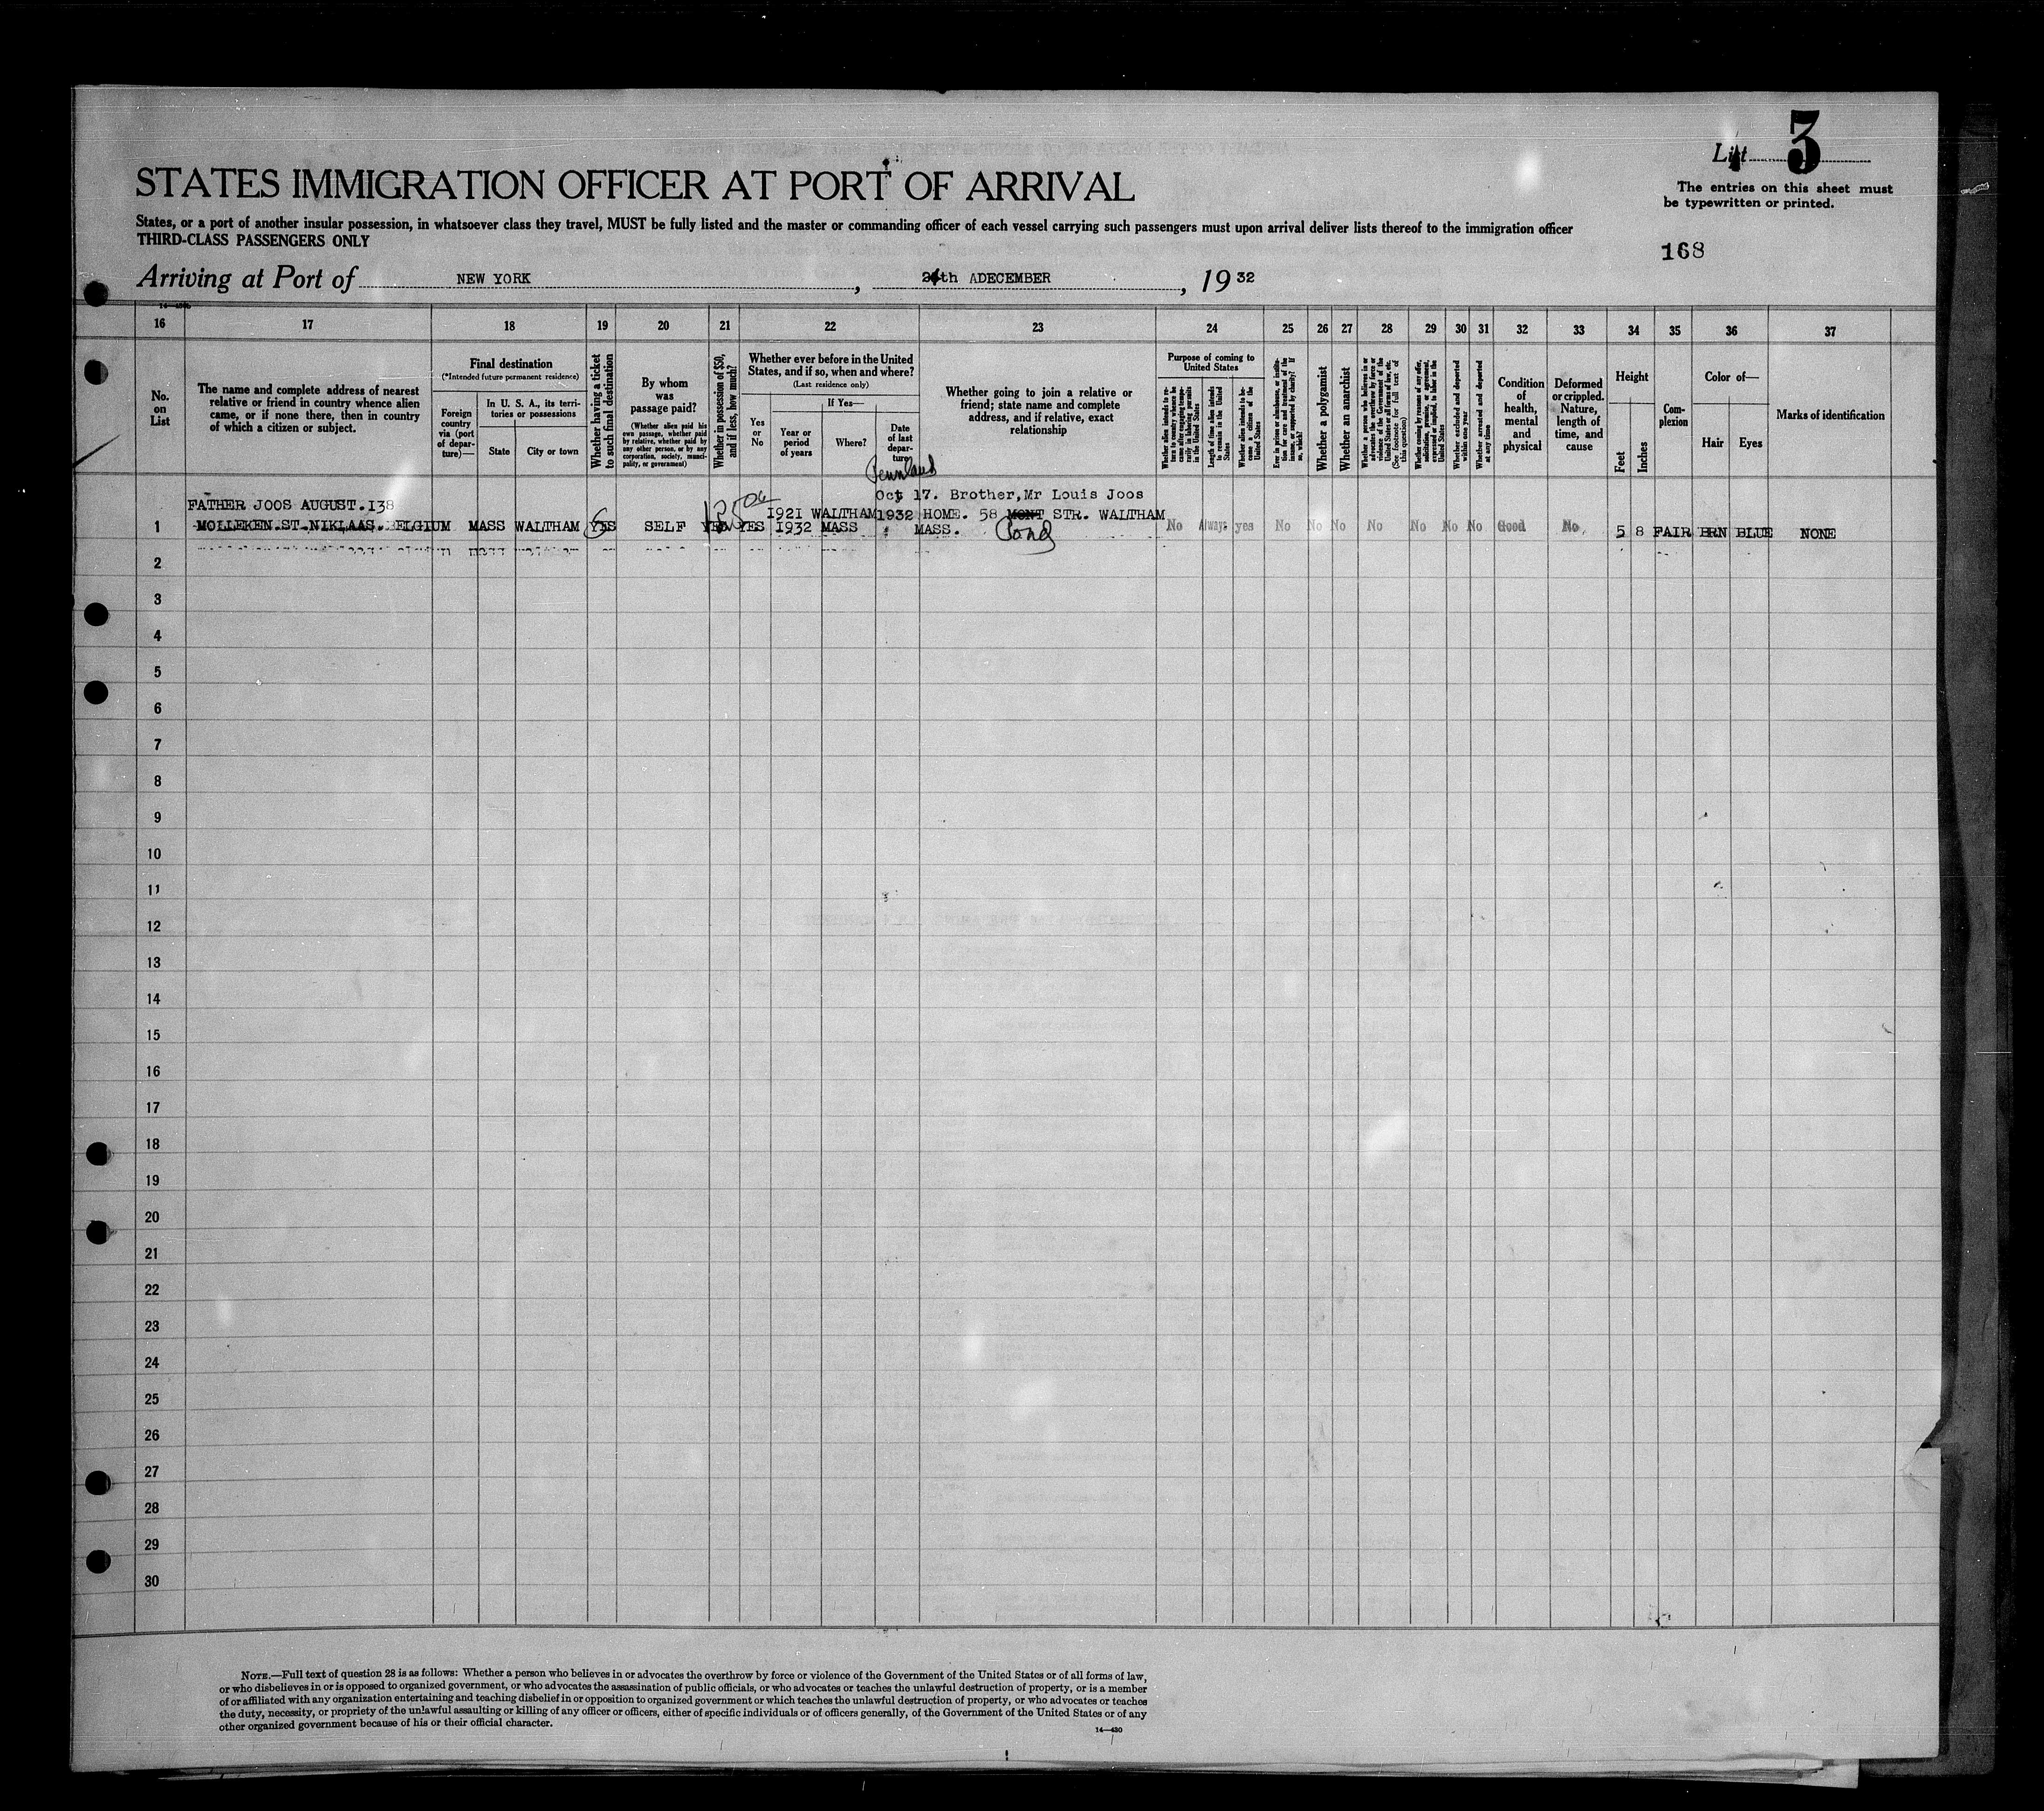 List 3
STATES IMMIGRATION OFFICER AT PORT OF ARRIVAL
The entries on this sheet must
be typewritten or printed.
States, or a port of another insular possession, in whatsoever class they travel, MUST be fully listed and the master or commanding officer of each vessel carrying such passengers must upon arrival deliver lists thereof to the immigration officer
THIRD-CLASS PASSENGERS ONLY
168
Arriving at Port of NEW YORK, ADECEMBER, 1932
16 17 18 19 20 21 22 23 24 25 26 27 28 29 30 31 32 33 34 35 36 37
No.
on
List
The name and complete address of nearest
relative or friend in country whence alien
came, or if none there, then in country
of which a citizen or subject.
Final destination
(*Intended future permanent residence)
Foreign
country
via (port
of depar-
ture)—
In U. S. A., its terri-
tories or possessions
State
City or town
Whether having a ticket
to such final destination
By whom
was
passage paid?
(Whether alien paid his
own passage, whether paid
by relative, whether paid by
any other person, or by any
corporation, society, munici-
pality, or government)
Whether in possession of $50,
and if less, how much?
Whether ever before in the United
States, and if so, when and where?
(Last residence only)
Yes
or
No
If Yes—
Year or
period
of years
Where?
Date
of last
depar-
ture
Whether going to join a relative or
friend; state name and complete
address, and if relative, exact
relationship
Purpose of coming to
United States
Whether alien intends to re-
turn to country whence he
came after engaging tempo-
rarily in laboring pursuits
in the United States
Length of time alien intends
to remain in the United
States
Whether alien intends to be-
come a citizen of the
United States
Ever in prison or almshouse, or institu-
tion for care and treatment of the
insane, or supported by charity? If
so, which?
Whether a polygamist
Whether an anarchist
Whether a person who believes in or
advocates the overthrow by force or
violence of the Government of the
United States or all forms of law, etc.
(See footnote for full text of
this question)
Whether coming by reason of any offer,
solicitation, promise, or agreement,
expressed or implied, to labor in the
United States
Whether excluded and deported
within one year
Whether arrested and deported
at any time
Condition
of
health,
mental
and
physical
Deformed
or crippled.
Nature,
length of
time, and
cause
Height
Feet
Inches
Com-
plexion
Color of—
Hair
Eyes
Marks of identification
Pennland
FATHER JOOS AUGUST.138
Oct 17. Brother, Mr Louis Joos
1921 WALTHAM 1932 HOME. 58 MONT STR. WALTHAM
1 MOLLEKEN.ST.NIKLAAS.BELGIUM MASS WALTHAM YES SELF YES YES 1932 MASS MASS. Pond No Always yes No No No No No No No Good No 5 8 FAIR BRN BLUE NONE
2
3
4
5
6
7
8
9
10
11
12
13
14
15
16
17
18
19
20
21
22
23
24
25
26
27
28
29
30
NOTE.—Full text of question 28 is as follows: Whether a person who believes in or advocates the overthrow by force or violence of the Government of the United States or of all forms of law,
or who disbelieves in or is opposed to organized government, or who advocates the assassination of public officials, or who advocates or teaches the unlawful destruction of property, or is a member
of or affiliated with any organization entertaining and teaching disbelief in or opposition to organized government or which teaches the unlawful destruction of property, or who advocates or teaches
the duty, necessity, or propriety of the unlawful assaulting or killing of any officer or officers, either of specific individuals or of officers generally, of the Government of the United States or of any
other organized government because of his or their official character.
14—430